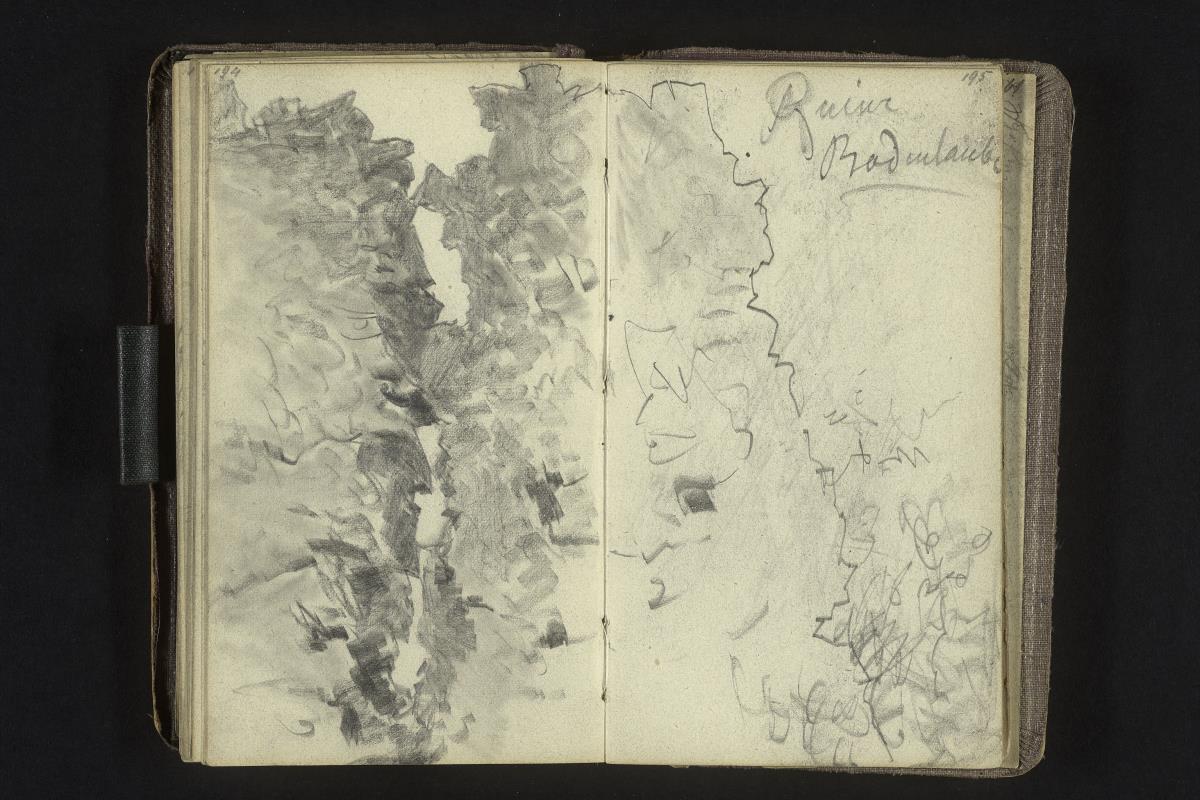 194
195
Ruine
Bodenlaube